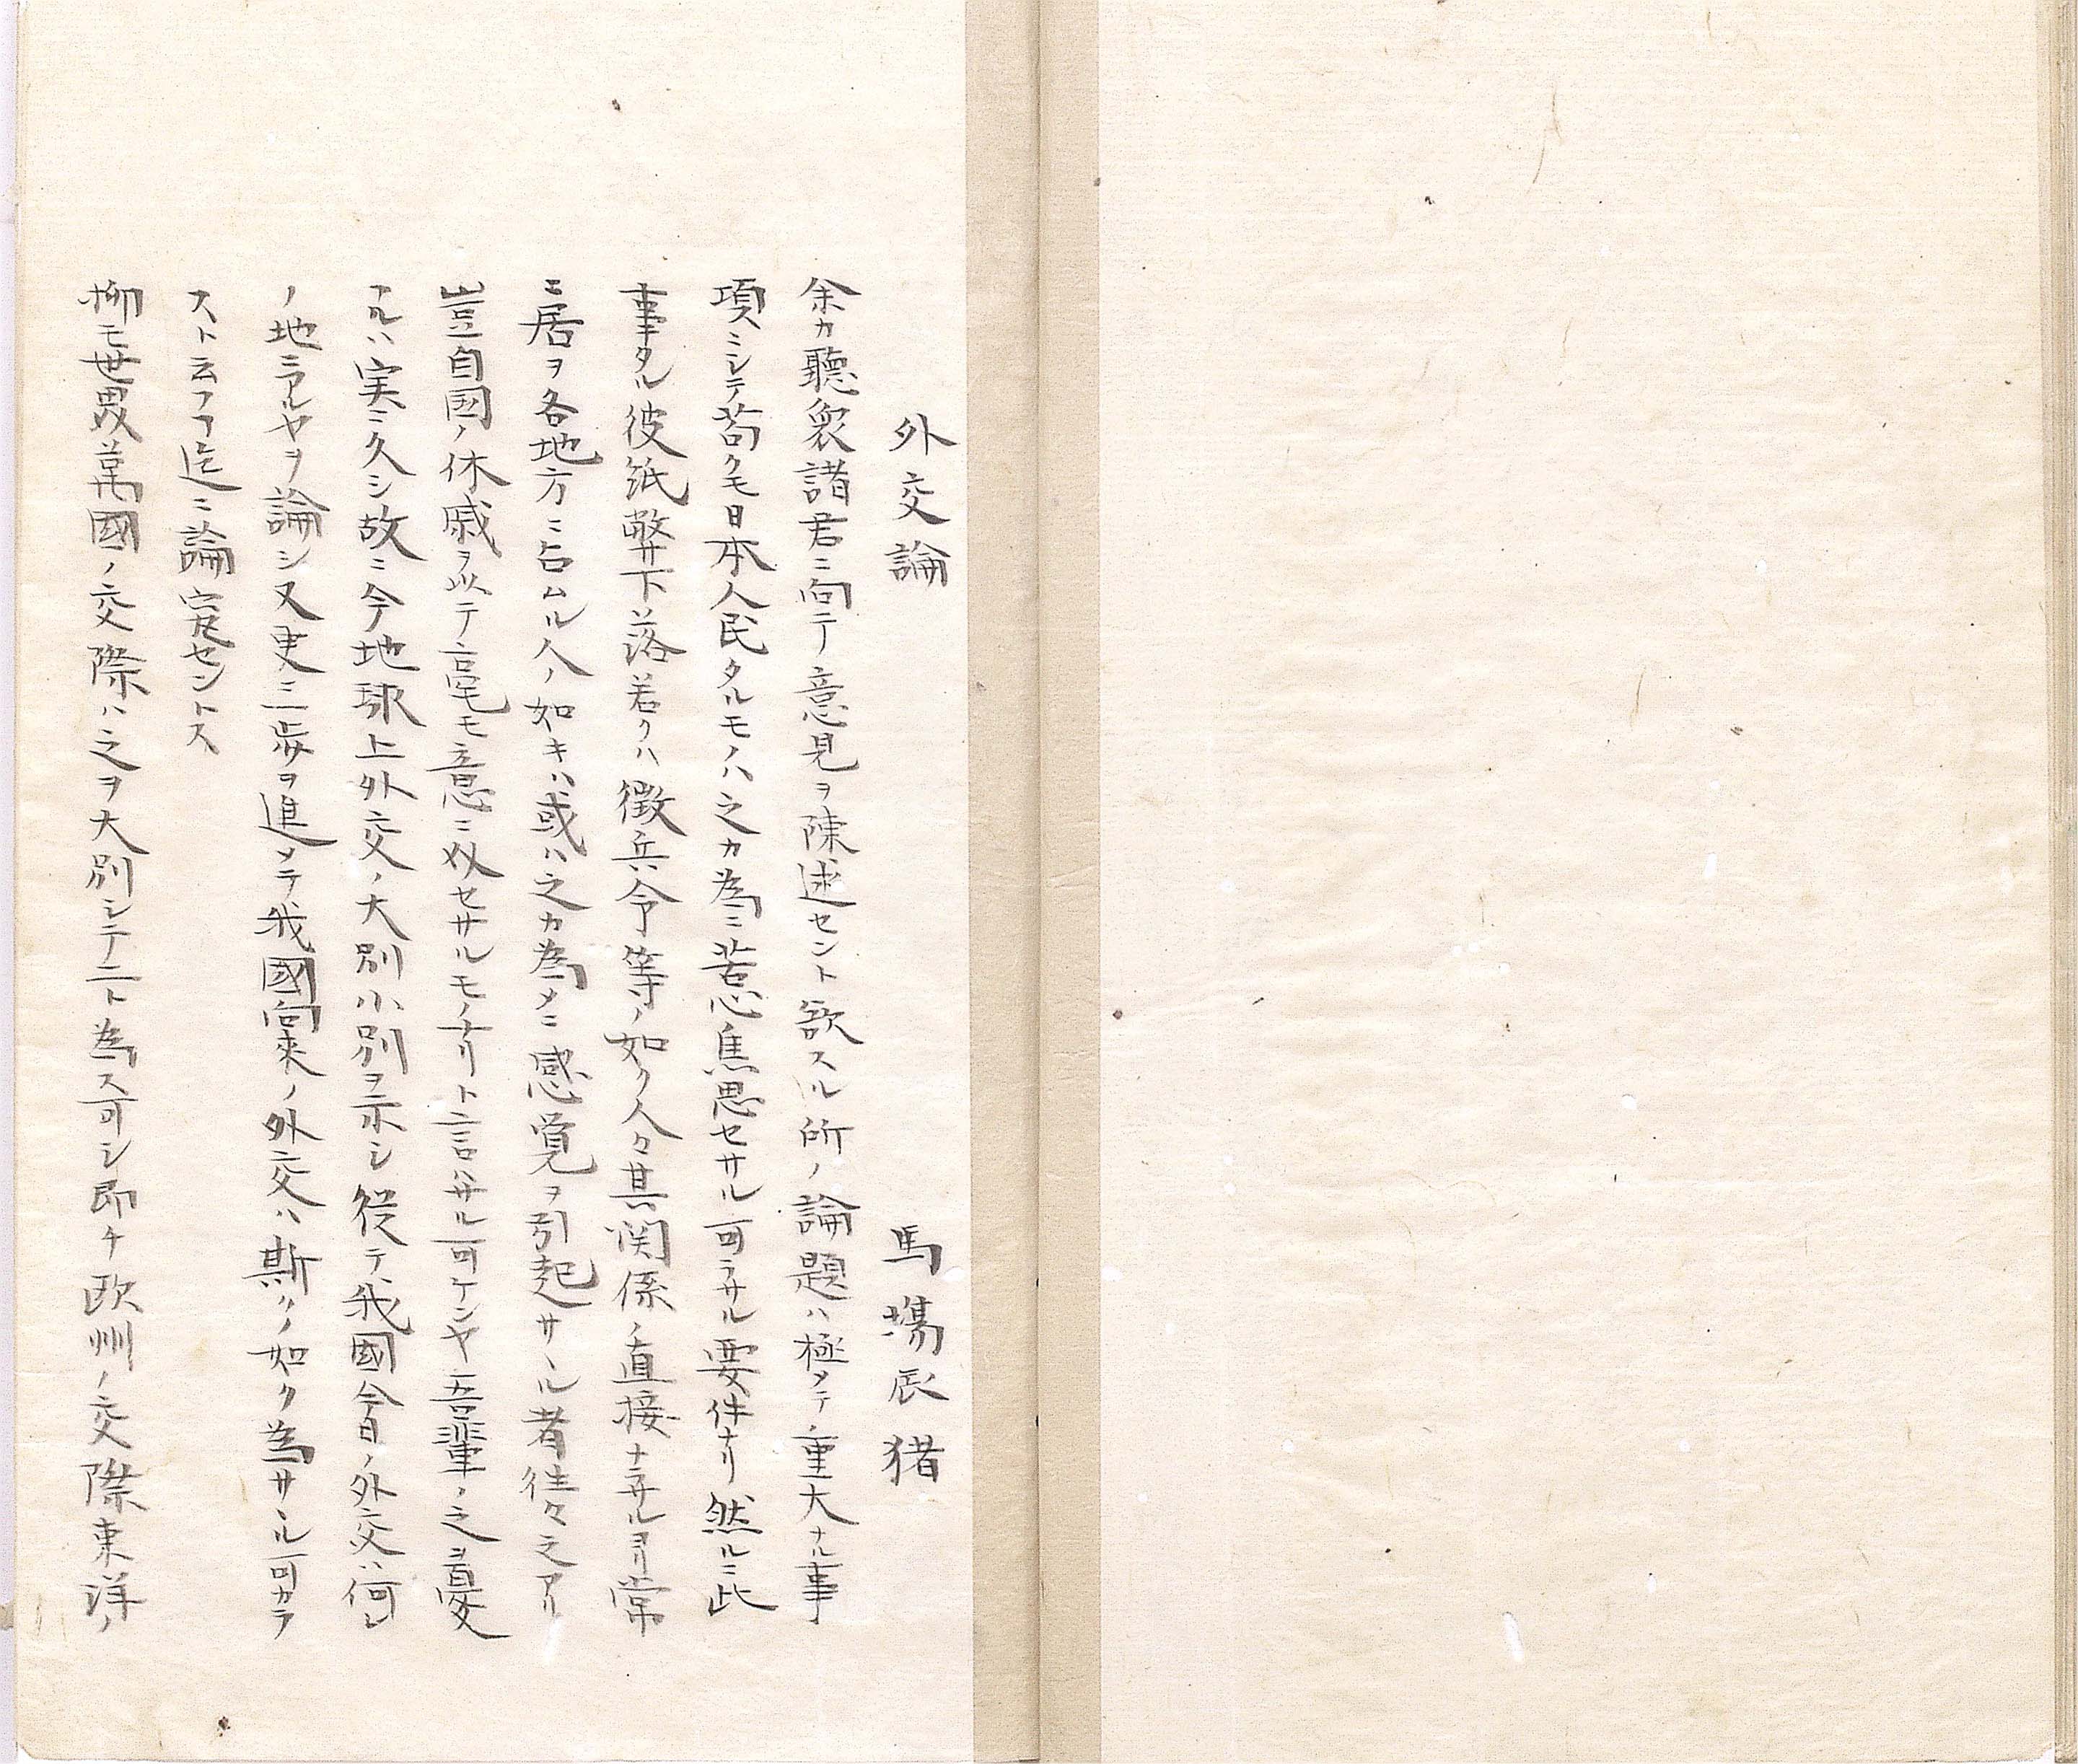 外交論
馬場辰猪
余カ聴衆諸君ニ向テ意見ヲ陳述セント欲スル所ノ論題ハ極メテ重大ナル事
項ニシテ苟クモ日本人民タルモノハ之カ為ニ苦心焦思セサル可ラサル要件ナリ然ルニ此
事タル彼紙弊下落若クハ徴兵令等ノ如ク人々其関係ノ直接ナラサルヨリ常
ニ居ヲ各地方ニ占ムル人ノ如キハ或ハ之カ為メニ感覚ヲ引起サヽル者徃々之アリ
豈自國ノ休戚ヲ以テ毫モ意ニ介セサルモノナリト言ハサル可ケンヤ吾輩ノ之ヲ憂
ナルハ実ニ久シ故ニ今地球上外交ノ大別小別ヲ示シ従テ我國今日ノ外交ハ何レ
ノ地ニアルヤヲ論シ又更ニ一歩ヲ進メテ我國向来ノ外交ハ斯クノ如ク為サヽル可カラ
スト云フヿ迄ニ論究セントス
抑モ世界萬國ノ交際ハ之ヲ大別シテ二ト為ス可シ即チ欧州ノ交際東洋ノ